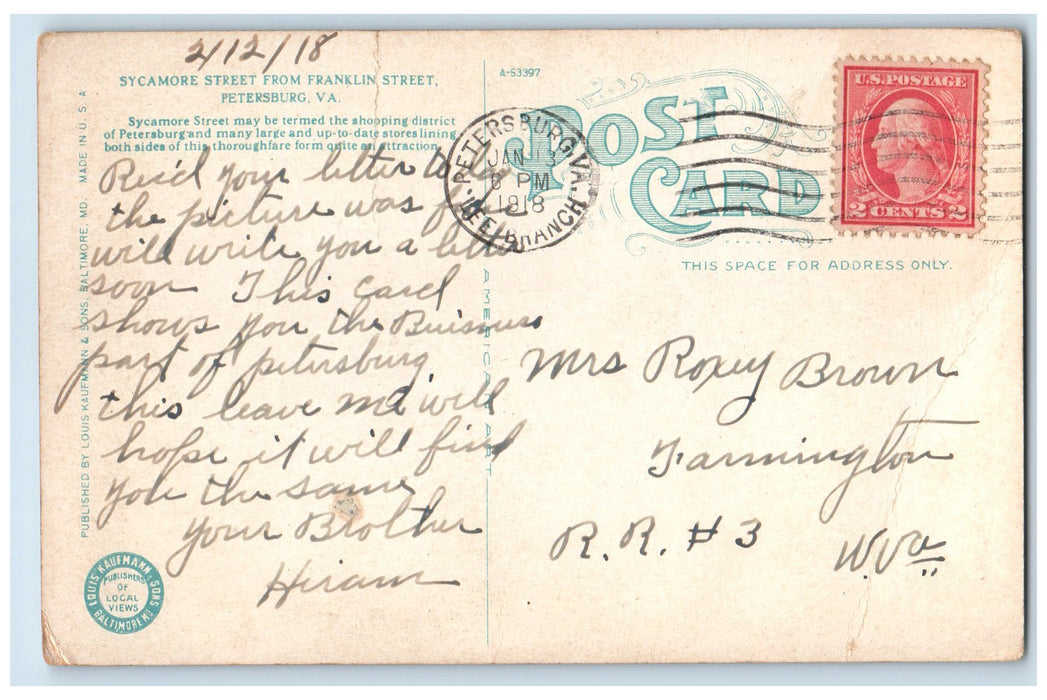 2/12/18
SYCAMORE STREET FROM FRANKLIN STREET,
PETERSBURG, VA.
Sycamore Street may be termed the shopping district
of Petersburg and many large and up-to-date stores lining
both sides of this thoroughfare form quite an attraction.
Rec'd your letter
the picture was
will write you a
soon This card
shows you the Buisness
part of petersburg
this leave me well
hope it will find
you the same
your Brother
Hiram
PUBLISHED BY LOUIS KAUFMANN & SONS, BALTIMORE, MD. MADE IN U.S.A.
LOUIS KAUFMANN & SONS
BALTIMORE MD
PUBLISHERS
OF
LOCAL
VIEWS
A-53397
POST
CARD
PETERSBURG, VA.
JAN 13
6 PM
1918
LEE BRANCH
U.S. POSTAGE
2 CENTS 2
THIS SPACE FOR ADDRESS ONLY.
AMERICAN ART
Mrs Roxey Brown
Farmington
R.R. #3 W.Va